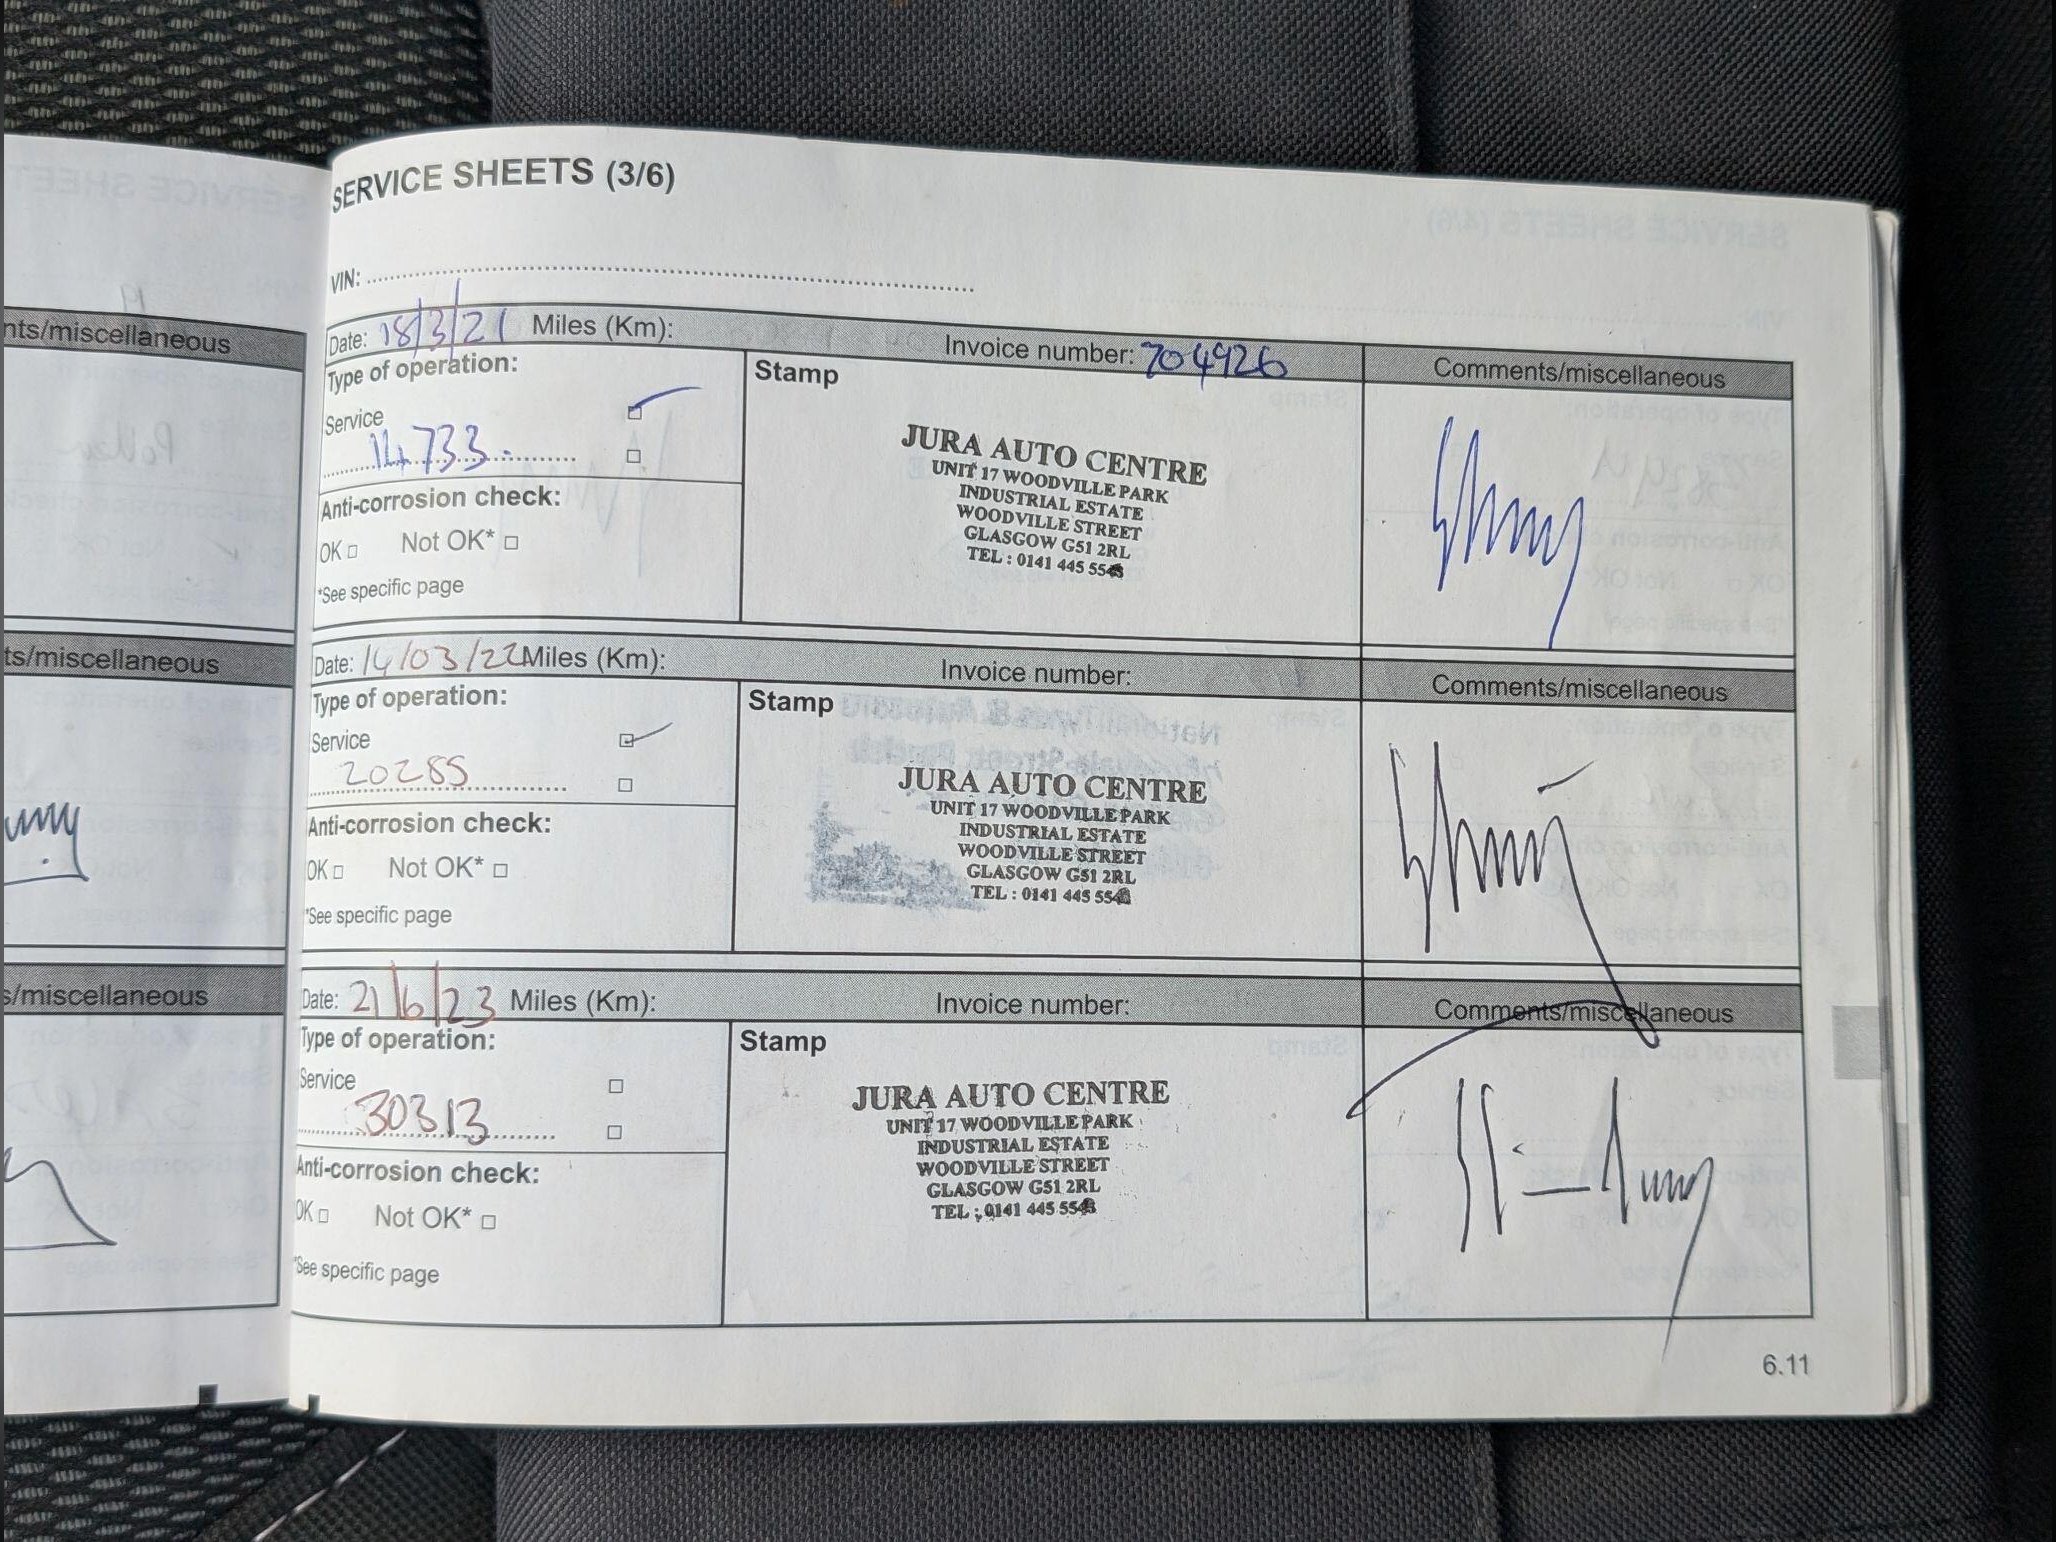 SERVICE SHEETS (3/6)
VIN:
nts/miscellaneous
Date: 18/3/21 Miles (Km): Invoice number: 704926 Comments/miscellaneous
Type of operation:
Service
14733.
Anti-corrosion check:
OK Not OK*
*See specific page
Stamp
JURA AUTO CENTRE
UNIT 17 WOODVILLE PARK
INDUSTRIAL ESTATE
WOODVILLE STREET
GLASGOW G51 2RL
TEL : 0141 445
ts/miscellaneous
Date: 14/03/22 Miles (Km): Invoice number: Comments/miscellaneous
Type of operation:
Service
20285
Anti-corrosion check:
OK Not OK*
*See specific page
Stamp
JURA AUTO CENTRE
UNIT 17 WOODVILLE PARK
INDUSTRIAL ESTATE
WOODVILLE STREET
GLASGOW G51 2RL
TEL : 0141 445
s/miscellaneous
Date: 21/6/23 Miles (Km): Invoice number: Comments/miscellaneous
Type of operation:
Service
30313
Anti-corrosion check:
OK Not OK*
*See specific page
Stamp
JURA AUTO CENTRE
UNIT 17 WOODVILLE PARK
INDUSTRIAL ESTATE
WOODVILLE STREET
GLASGOW G51 2RL
TEL : 0141 445
6.11